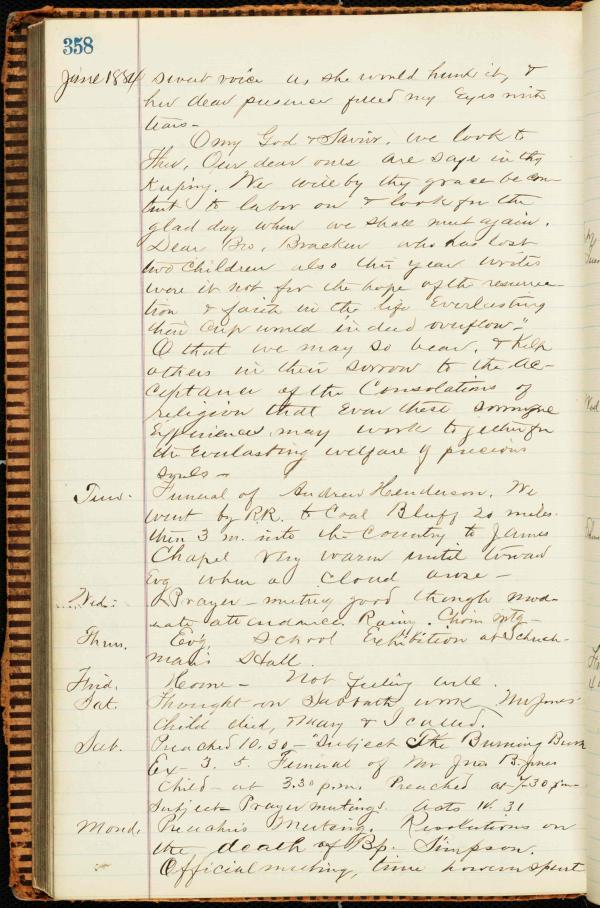 358
June 1884 sweet voice as she would hum it, &
her dear presence filled my Eyes with
tears -
O my God & Savior. we look to
Thee, Our dear ones are safe in thy
Keeping. We will by thy grace be con-
tent to labor on & look for the
glad day when we shall meet again.
Dear Bro. Bracken who has lost
two children also this year writes
were it not for the hope of the resurrec-
tion & faith in the life Everlasting
their Cup would indeed overflow -"
O that we may so bear, & help
others in their sorrow to the ac-
ceptance of the Consolations of
religion that Even these
Experiences may work together for
the Everlasting welfare of precious
souls -
Tues. Funeral of Andrew Henderson. We
went by R.R. to Coal Bluff 20 miles
then 3 m. into the Country to James
Chapel Very warm until toward
Evg when a cloud arose -
Wed: Prayer - meeting good though mod-
erate attendance. Rainy.
Thurs. Evg. School Exhibition at
man's Hall.
Frid. Home - Not feeling well.
Sat. Thought on Sabbath work. Mr Jones'
Child died, Mary & I called.
Sab. Preached 10.30 - "Subject The Burning Bush
Ex - 3. 5. Funeral of Mr Jno B. Jones
Child - at 3.30 p.m. Preached at 7.30 pm
Subject - Prayer meetings Acts 16. 31
Mond. Preachers Meeting. Resolutions on
the death of Bp. Simpson.
Official meeting, time however spent